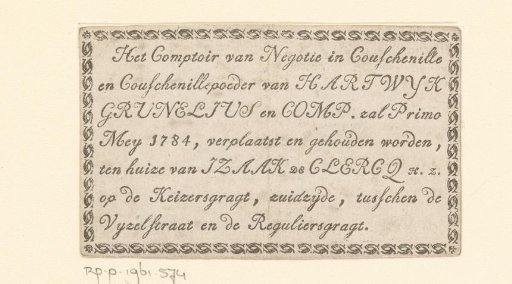 Het Comptoir van Negotie in Couſchenille
en Couſchenillepoeder van HARTWYK
GRUNELIUS en COMP. zal Primo
Mey 1784, verplaatst en gehouden worden,
ten huize van IZAAK DE CLERCQ H. z.
op de Keizersgragt, zuidzyde, tusſchen de
Vyzelſtraat en de Reguliersgragt.
RP-P-1961-574